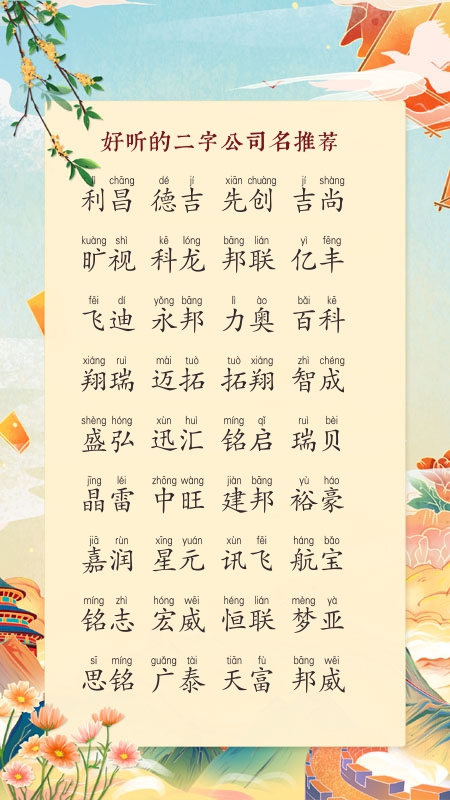 好听的二字公司名推荐
lì chāng dé jí xiān chuàng jí shàng
利昌 德吉 先创 吉尚
kuàng shì kē lóng bāng lián yì fēng
旷视 科龙 邦联 亿丰
fēi dí yǒng bāng lì ào bǎi kē
飞迪 永邦 力奥 百科
xiáng ruì mài tuò tuò xiáng zhì chéng
翔瑞 迈拓 拓翔 智成
shèng hóng xùn huì míng qǐ ruì bèi
盛弘 迅汇 铭启 瑞贝
jīng léi zhōng wàng jiàn bāng yù háo
晶雷 中旺 建邦 裕豪
jiā rùn xīng yuán xùn fēi háng bǎo
嘉润 星元 讯飞 航宝
míng zhì hóng wēi héng lián mèng yà
铭志 宏威 恒联 梦亚
sī míng guǎng tài tiān fù bāng wēi
思铭 广泰 天富 邦威